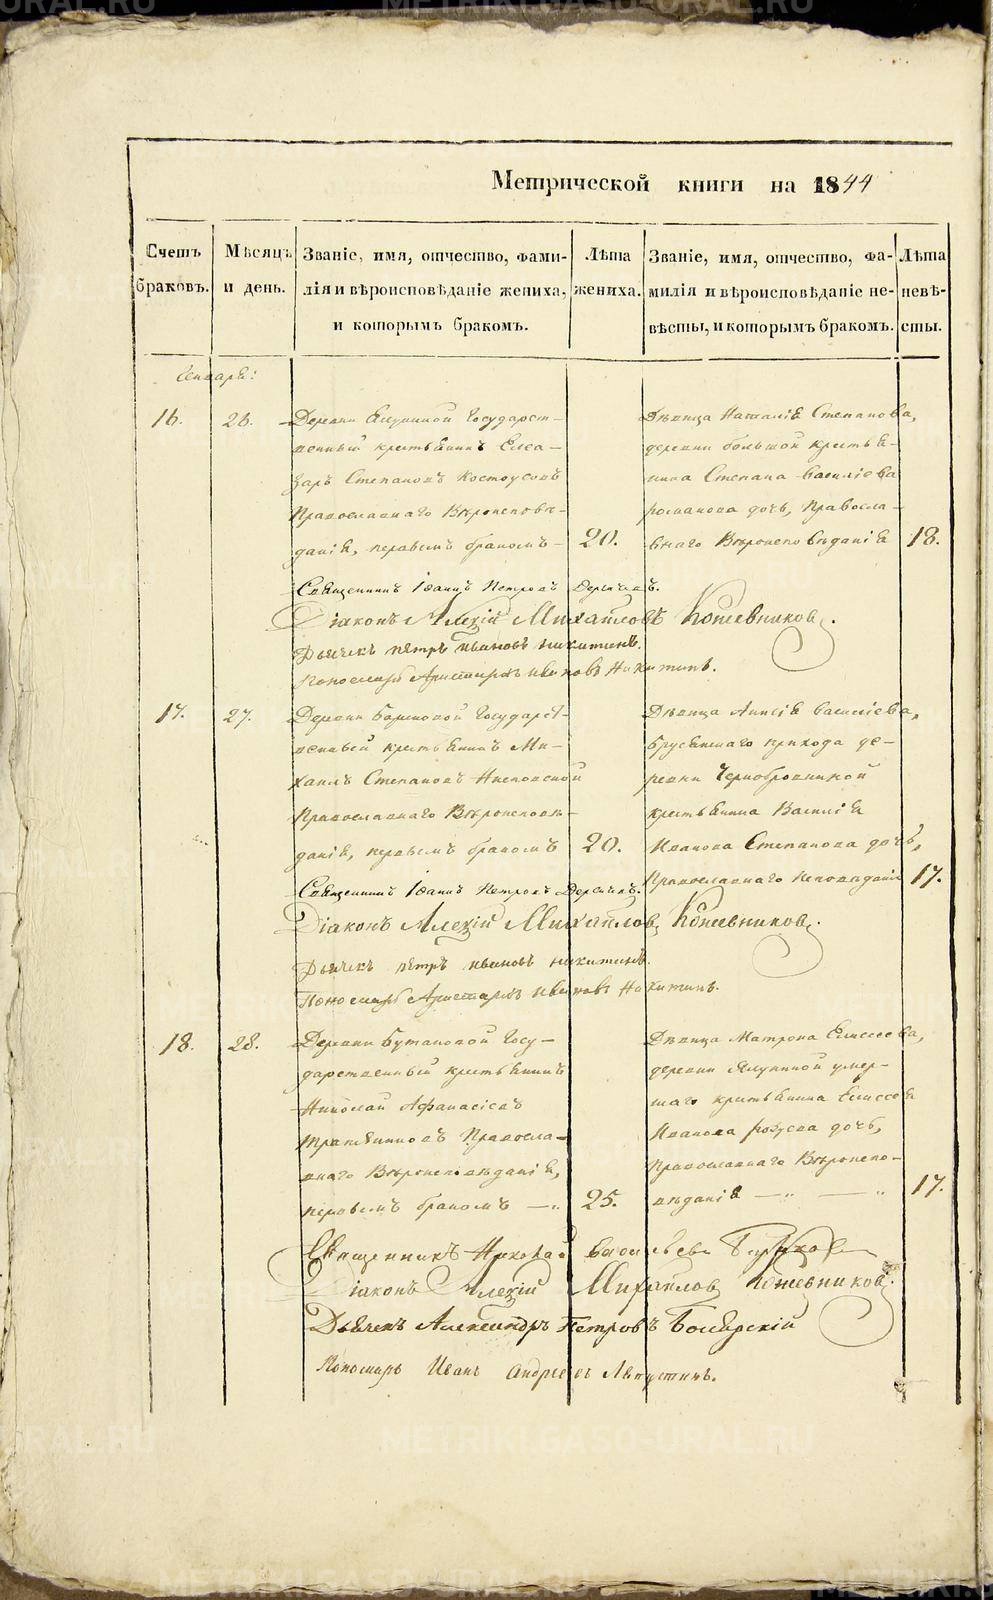 METRIKI.GASO-URAL.RU
Метрической книги на 1844
Счетъ браковъ.
Мѣсяцъ и день.
Званіе, имя, отчество, фами-
лія и вѣроисповѣданіе жениха,
и которымъ бракомъ.
Лѣта
жениха.
Званіе, имя, отчество, фа-
милія и вѣроисповѣданіе не-
вѣсты, и которымъ бракомъ.
Лѣта
невѣ-
сты.
Генваря:
16.
26.
Деревни Государст-
венный крестьянинъ Елеа-
заръ Степановъ Костоусовъ
Православнаго Вѣроисповѣ-
данія, первымъ бракомъ-
20.
Дѣвица Наталія Степанова,
деревни большой крестья-
нина Степана Василіева
романова дочь, Правосла-
внаго Вѣроисповѣданія
18.
Священникъ Іоаннъ Петровъ
Діаконъ Алексій Михайловъ Кожевниковъ.
Дьячекъ петръ ивановъ никитинъ.
Пономарь Аристархъ ивановъ Никитинъ.
17.
27.
Деревни Государст-
венный крестьянинъ Ми-
хаилъ Степановъ
Православнаго Вѣроисповѣ-
данія, первымъ бракомъ
20.
Дѣвица Василіева,
прихода де-
ревни Чернобровкиной
крестьянина Василія
Иванова Степанова дочь,
Православнаго Исповѣданія
17.
Священникъ Іоаннъ Петровъ
Діаконъ Алексій Михайловъ Кожевниковъ.
Дьячекъ петръ ивановъ никитинъ.
Пономарь Аристархъ ивановъ Никитинъ.
18.
28.
Деревни Бутаковой Госу-
дарственный крестьянинъ
Николай Афанасіевъ
Правосла-
внаго Вѣроисповѣданія,
первымъ бракомъ —„
25.
Дѣвица Матрона Елисеева,
деревни Ялуниной умер-
шаго крестьянина Елисея
Иванова дочь,
Православнаго Вѣроиспо-
вѣданія —„ —„
17.
Священникъ Николай Васильевъ
Діаконъ Алексій Михайловъ Кожевниковъ.
Дьячекъ Александръ Петровъ
Пономарь Иванъ Андреевъ